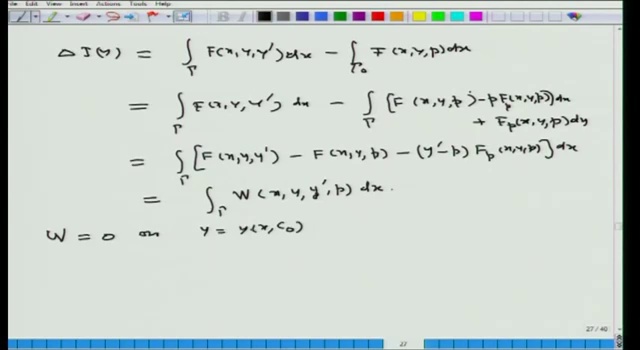 View Insert Actions Tools Help
Δ J(y) = ∫_Γ F(x,y,y')dx − ∫_Γ₀ F(x,y,p)dx
= ∫_Γ F(x,y,y') dx − ∫_Γ [F(x,y,p) − pF_p(x,y,p)]dx
+ F_p(x,y,p)dy
= ∫_Γ [F(x,y,y') − F(x,y,p) − (y'−p) F_p(x,y,p)]dx
= ∫_Γ W(x,y,y',p) dx.
W = 0 on y = y(x,C₀)
27 / 40
27